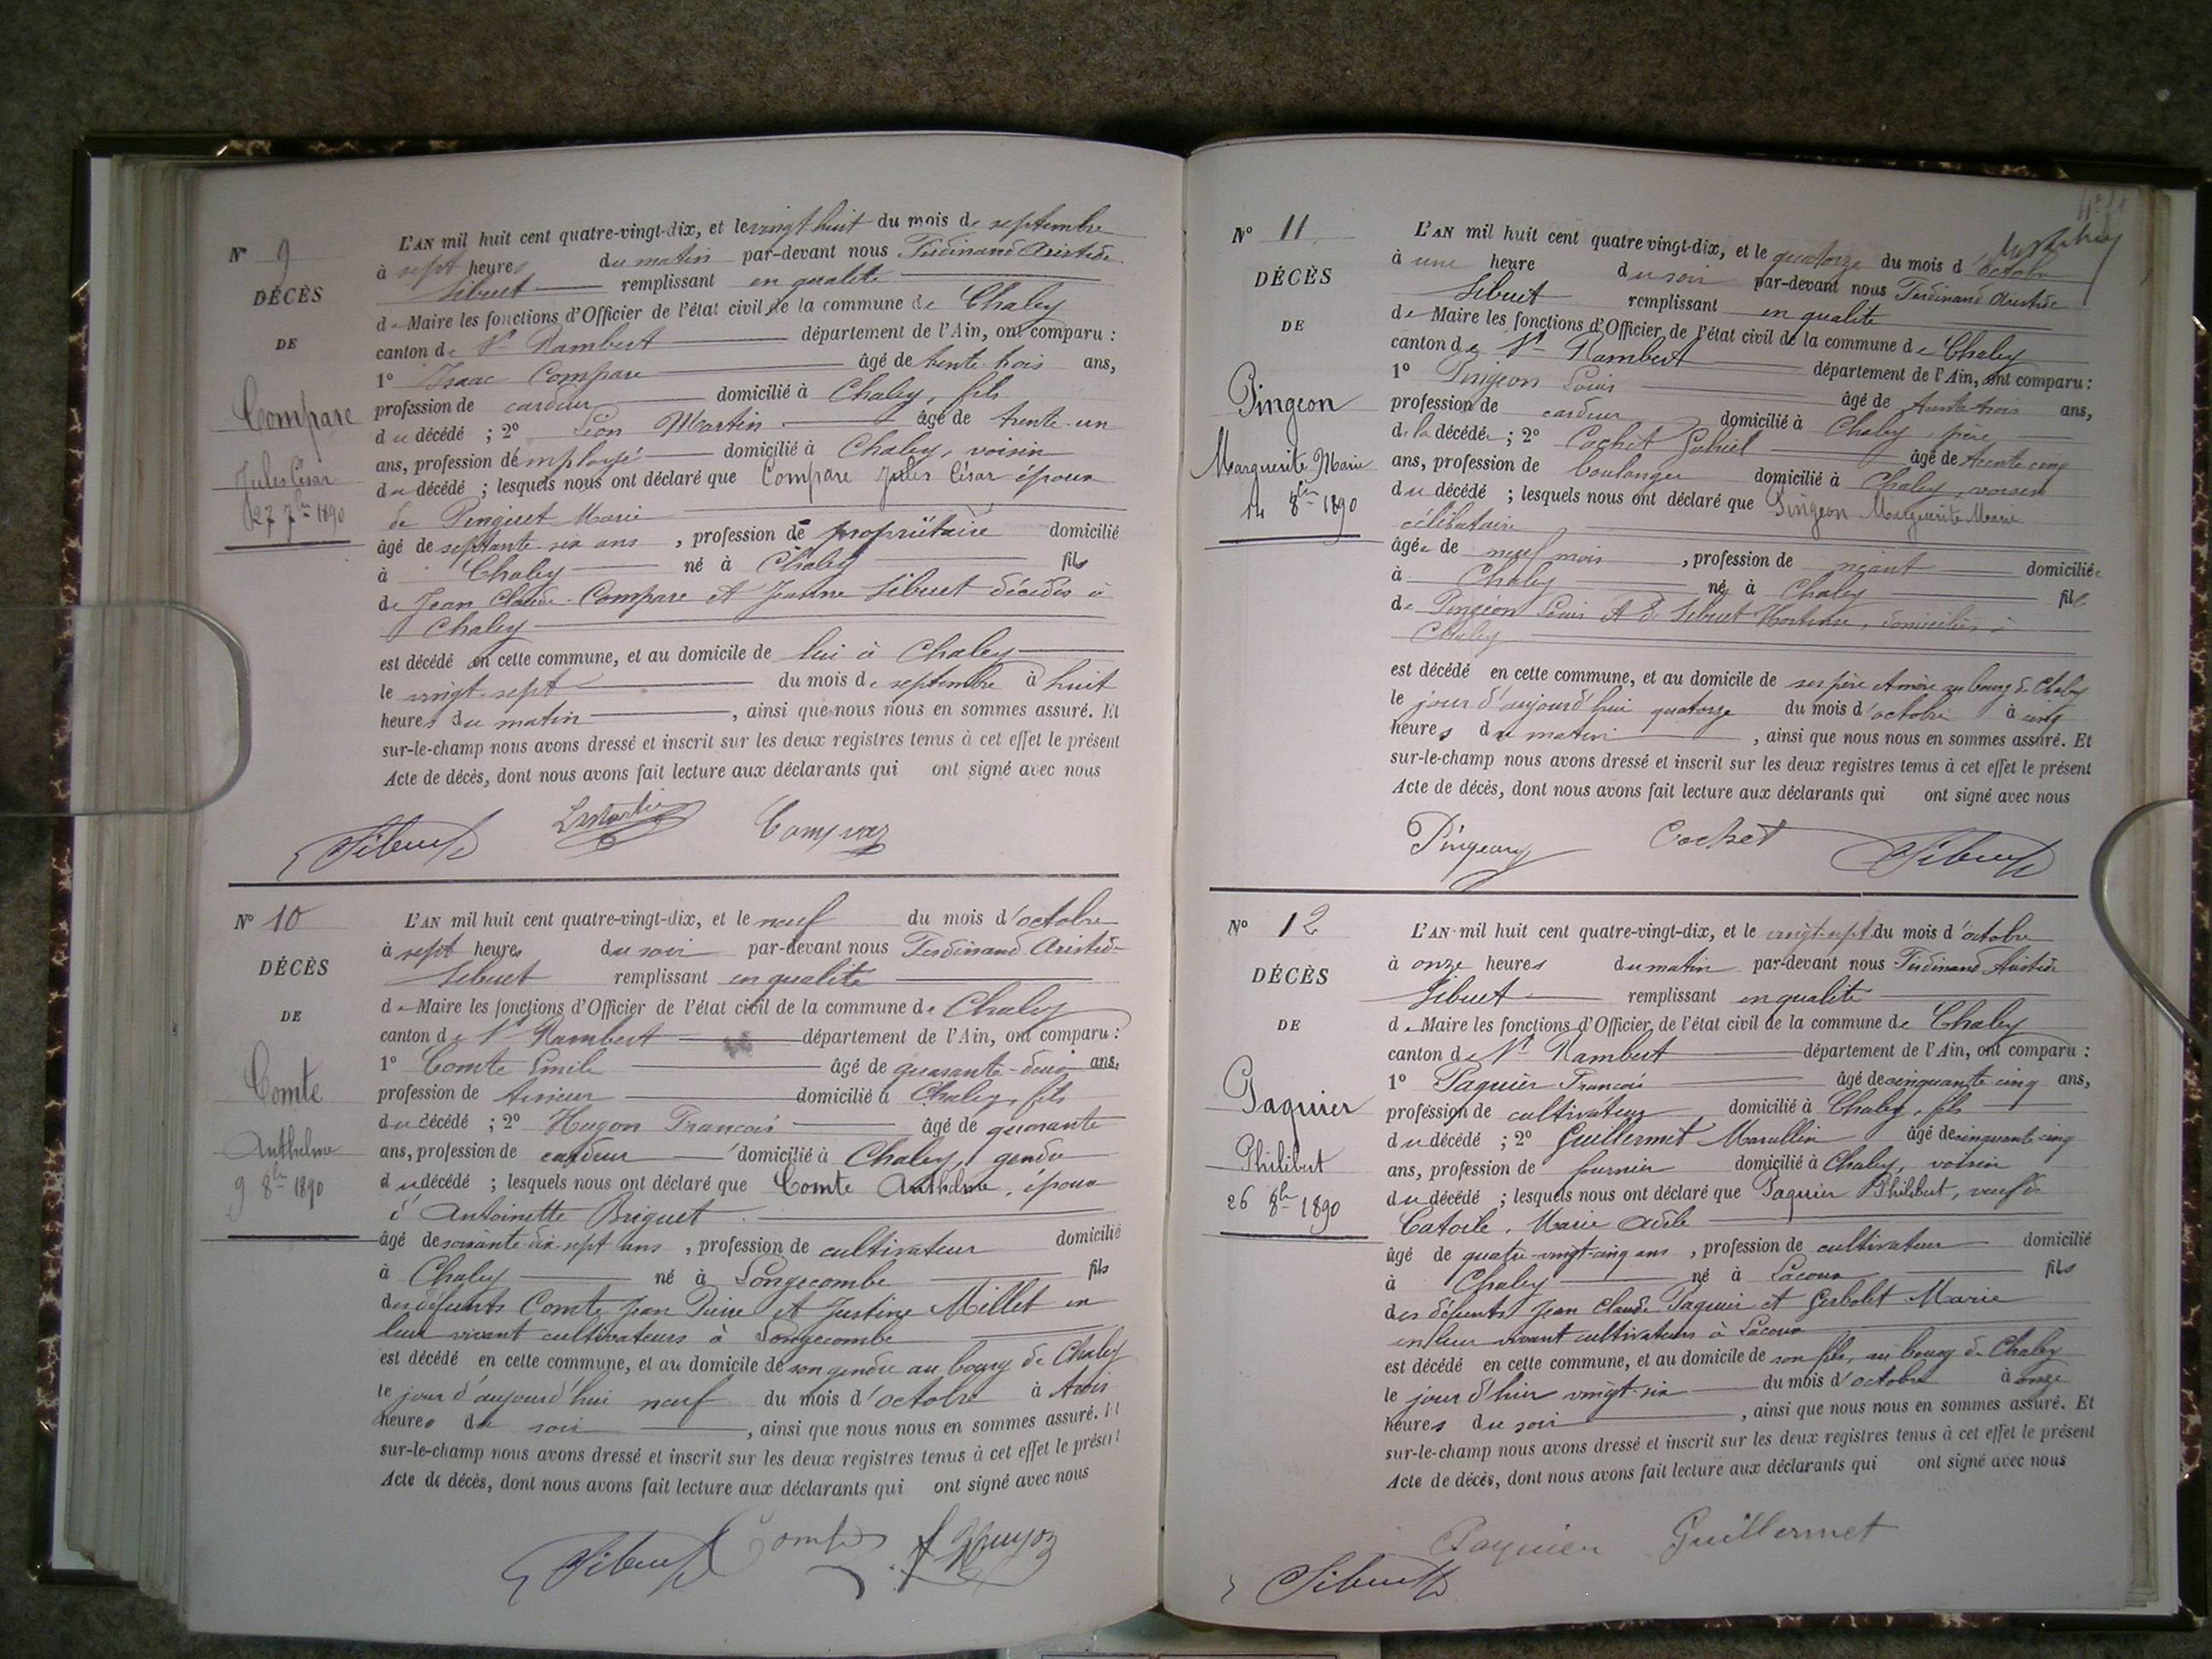 N° 9
DÉCÈS
DE
Compare
Jules César
27 7bre 1890
L'AN mil huit cent quatre-vingt-dix, et le vingt huit du mois de septembre
à sept heures du matin par-devant nous Ferdinand Aristide
Sibuet remplissant en qualité
de Maire les fonctions d'Officier de l'état civil de la commune de Chaley
canton de St Rambert département de l'Ain, ont comparu :
1° Isaac Compare âgé de trente trois ans,
profession de cardeur domicilié à Chaley, fils
du décédé ; 2° Léon Martin âgé de trente-un
ans, profession d'employé domicilié à Chaley, voisin
du décédé ; lesquels nous ont déclaré que Compare Jules César époux
de Marie
âgé de septante-six ans , profession de propriétaire domicilié
à Chaley né à Chaley fils
de Jean Claude Compare et Jeanne Sibuet décédés à
Chaley
est décédé en cette commune, et au domicile de lui à Chaley
le vingt-sept du mois de septembre à huit
heures du matin , ainsi que nous nous en sommes assuré. Et
sur-le-champ nous avons dressé et inscrit sur les deux registres tenus à cet effet le présent
Acte de décès, dont nous avons fait lecture aux déclarants qui ont signé avec nous
Sibuet
N° 10
DÉCÈS
DE
Comte
Anthelme
9 8bre 1890
L'AN mil huit cent quatre-vingt-dix, et le neuf du mois d'octobre
à sept heures du soir par-devant nous Ferdinand Aristide
Sibuet remplissant en qualité
de Maire les fonctions d'Officier de l'état civil de la commune de Chaley
canton de St Rambert département de l'Ain, ont comparu :
1° Comte Emile âgé de quarante-deux ans,
profession de domicilié à Chaley, fils
du décédé ; 2° Hugon François âgé de quarante
ans, profession de cardeur domicilié à Chaley, gendre
du décédé ; lesquels nous ont déclaré que Comte Anthelme, époux
d'Antoinette Briguet
âgé de soixante dix-sept ans , profession de cultivateur domicilié
à Chaley né à Longecombe fils
des défunts Comte Jean Pierre et Justine Millet en
leur vivant cultivateurs à Longecombe
est décédé en cette commune, et au domicile de son gendre au bourg de Chaley
le jour d'aujourd'hui neuf du mois d'octobre à trois
heures du soir , ainsi que nous nous en sommes assuré. Et
sur-le-champ nous avons dressé et inscrit sur les deux registres tenus à cet effet le présent
Acte de décès, dont nous avons fait lecture aux déclarants qui ont signé avec nous
Sibuet
N° 11
DÉCÈS
DE
Pingeon
Marguerite Marie
14 8bre 1890
L'AN mil huit cent quatre vingt-dix, et le quatorze du mois d'octobre
à une heure du soir par-devant nous Ferdinand Aristide
Sibuet remplissant en qualité
de Maire les fonctions d'Officier de l'état civil de la commune de Chaley
canton de St Rambert département de l'Ain, ont comparu :
1° Pingeon Louis âgé de trente trois ans,
profession de cardeur domicilié à Chaley, père
de la décédée ; 2° Cochet Gabriel âgé de trente cinq
ans, profession de boulanger domicilié à Chaley, voisin
du décédé ; lesquels nous ont déclaré que Pingeon Marguerite Marie
célibataire
âgée de neuf mois , profession de néant domiciliée
à Chaley né à Chaley fil
de Pingeon Louis et de Sibuet Hortense, domiciliés à
Chaley
est décédé en cette commune, et au domicile de ses père et mère au bourg de Chaley
le jour d'aujourd'hui quatorze du mois d'octobre à cinq
heures du matin , ainsi que nous nous en sommes assuré. Et
sur-le-champ nous avons dressé et inscrit sur les deux registres tenus à cet effet le présent
Acte de décès, dont nous avons fait lecture aux déclarants qui ont signé avec nous
Pingeon Cochet Sibuet
N° 12
DÉCÈS
DE
Paquier
Philibert
26 8bre 1890
L'AN mil huit cent quatre-vingt-dix, et le vingt-sept du mois d'octobre
à onze heures du matin par-devant nous Ferdinand Aristide
Sibuet remplissant en qualité
de Maire les fonctions d'Officier de l'état civil de la commune de Chaley
canton de St Rambert département de l'Ain, ont comparu :
1° Paquier François âgé de cinquante cinq ans,
profession de cultivateur domicilié à Chaley, fils
du décédé ; 2° Guillermet Marcellin âgé de cinquante cinq
ans, profession de fournier domicilié à Chaley, voisin
du décédé ; lesquels nous ont déclaré que Paquier Philibert, veuf de
Marie Adèle
âgé de quatre-vingt-cinq ans , profession de cultivateur domicilié
à Chaley né à Lacoux fils
des défunts Jean Claude Paquier et Gerbolet Marie
en leur vivant cultivateurs à Lacoux
est décédé en cette commune, et au domicile de son fils, au bourg de Chaley
le jour d'hier vingt-six du mois d'octobre à onze
heures du soir , ainsi que nous nous en sommes assuré. Et
sur-le-champ nous avons dressé et inscrit sur les deux registres tenus à cet effet le présent
Acte de décès, dont nous avons fait lecture aux déclarants qui ont signé avec nous
Paquier Guillermet
Sibuet